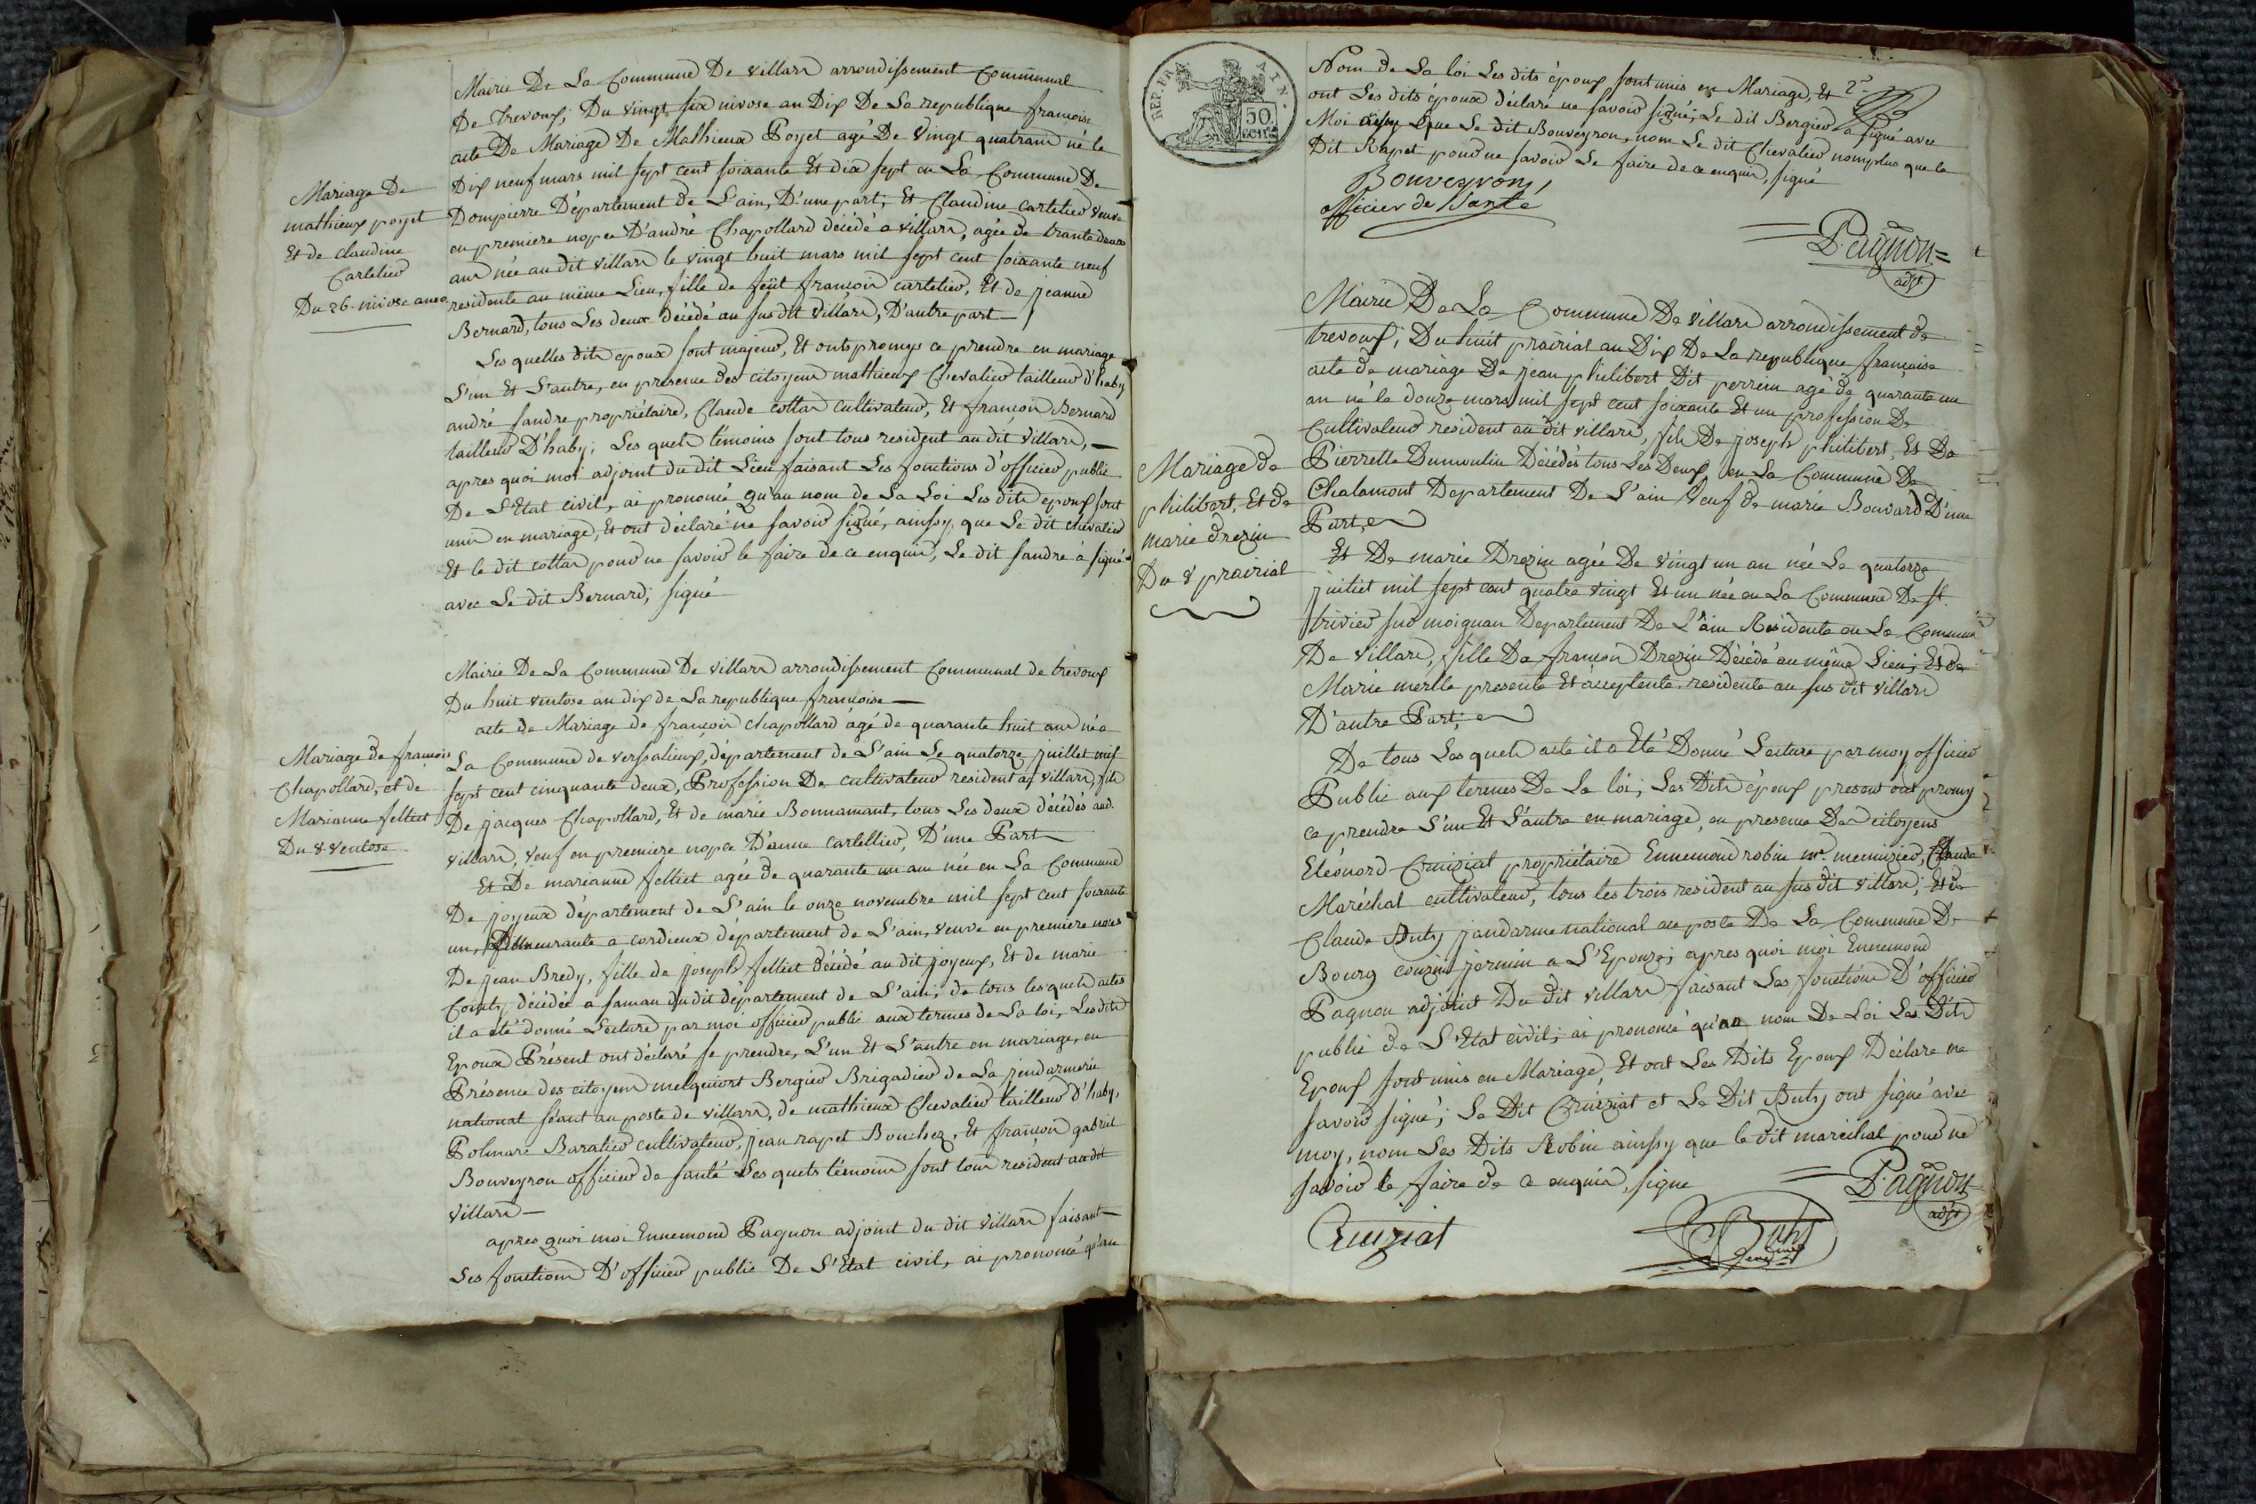 Mairie De La Commune De villars arrondissement Communal
De trevoux, Du vingt six nivose an Dix De La republique francoise
acte De Mariage De Mathieux Poyet agé De Vingt quatrans né le
Dix neuf mars mil sept cent soixante Et dix sept en La Commune De
Dompierre Département de L'ain, D'une part, Et Claudine cartelier veuve
en premiere nopce D'andré Chapollard décédé a villars, agée de trante deux
ans née au dit villars le vingt huit mars mil sept cent soixante neuf
residente au même Lieu, fille de feüt francois cartelier, Et de jeanne
Bernard, tous Les deux décédé au susdit villars, D'autre part
Mariage De
mathieux poyet
Et de claudine
Cartelier
Du 26 nivose an 10
Les quelles dits epoux sont majeur, Et onts promys ce prendre en mariage
L'un Et L'autre, en presence des citoyens mathieux Chevalier tailleur d'haby
andré sandre propriétaire, Claude cottar cultivateur, Et francois Bernard
tailleur D'haby; Les quels témoins sont tous resident au dit villars,
apres quoi moi adjoint du dit Lieu faisant Les fonctions d'officier public
De L'Etat civil, ai prononcé qu'au nom de La Loi Les dits epoux sont
unis en mariage, Et ont déclaré ne savoir signé, ainssy que Le dit chevalier
Et le dit cottar pour ne savoir le faire de ce enquis, Le dit sandre à signé
avec Le dit Bernard; signé
Mairie De La Commune De villars arrondissement Communal de trevoux
Du huit ventose an dix de La republique francoise
acte de Mariage de francois chapollard âgé de quarante huit ans né a
La Commune de versalieux, département de L'ain Le quatorze juillet mil
sept cent cinquante deux, Profession De cultivateur resident au villars, fils
De jacques Chapollard, Et de marie Bonnamant, tous Les deux décédés aud.
villars, veuf en premiere nopce D'anne cartellier, D'une Part
Mariage de francois
Chapollard, et de
Marianne felliet
Du 8 ventose
Et De marianne felliet agée de quarante un ans née en La Commune
De joyeux département de L'ain le onze novembre mil sept cent soixante
un, Demeurante a cordieux département de L'ain, veuve en premiere noces
De jean Bredy, fille de joseph felliet décédé au dit joyeux, Et de marie
décédée a saman du dit département de L'ain; de tous lesquels actes
il a été donné Lecture par moi officier public aux termes de La loi, Lesdits
Epoux Présent ont déclaré se prendre, L'un Et L'autre en mariage, en
Présence des citoyens melquiort Bergier Brigadier de La jendarmerie
national séant au poste de villars, de mathieux Chevalier tailleur d'haby,
Polmare Baralier cultivateur, jean rapet Bouchez, Et francois gabriel
Bouveyron officier de santé Les quels témoins sont tous resident audit
villars
apres quoi moi Ennemond Pagnon adjoint du dit villars faisant
Les fonctions D'officier public De L'Etat civil, ai prononcé qu'au
REP. FRA
50
CENT.
AIN.
Nom de La loi Les dits époux sont unis en Mariage, Et
ont Les dits époux déclaré ne savoir signé; Le dit Bergier a signé avec
Moi Que Le dit Bouveyron, nom Le dit Chevalier nomplus que le
Dit Rapet pour ne savoir Le faire de ce enquis, signé
Bouveyron
officier de Santé
Pagnon
adjt
Mairie De La Commune De villars arrondissement de
trevoux, Du huit prairial an Dix De La republique francoise
acte de mariage De jean philibert Dit perrein agé de quarante un
an né le douze mars mil sept cent soixante Et un profession De
Cultivateur resident au dit villars, fils De joseph philibert, Et De
Pierrette Dumoulin Décédés tous Les Deux en La Commune De
Chalamont Departement De L'ain Veuf de marie Bouvard D'une
Part,
Mariage de
philibert, Et de
marie drezin
Du 8 prairial
Et De marie Drezin agée De vingt un an née Le quatorze
juiliet mil sept cent quatre vingt Et un née en La Commune De st
trivier sur moignan Departement De L'ain Residente en La Commune
De villars, fille De francois Drezin Décédé au même Lieu; Et de
Marie merlle presente Et acceptente residente au sus dit villars
D'autre Part;
De tous Lesquels acte il a Eté Donné Lecture par moy officier
Public aux termes De La loi; Les Dits époux present ont promy
ce prendre L'un Et L'autre en mariage, en presence De citoyens
Eléonord Cruiziat propriétaire Ennemond robin mr. menuizier, Claude
Maréchal cultivateur, tous les trois resident au sus dit villars; Et de
Claude Buty jandarme national au poste De La Commune De
Bourg couzin jermin a L'Epouze; apres quoi moi Ennemond
Pagnon adjoint Du dit villars faisant Les fonction D'officier
public de L'Etat civil; ai prononcé qu'au nom De Loi Les Dits
Epoux sont unis en Mariage Et ont Les Dits Epoux Déclare ne
savoir signé; Le Dit Cruiziat et Le Dit Buty ont signé avec
moy, nom Les Dits Robin ainssy que le dit maréchal pour ne
savoir le faire de ce enquis, signe
Pagnon
adjt
Cruiziat
Buty